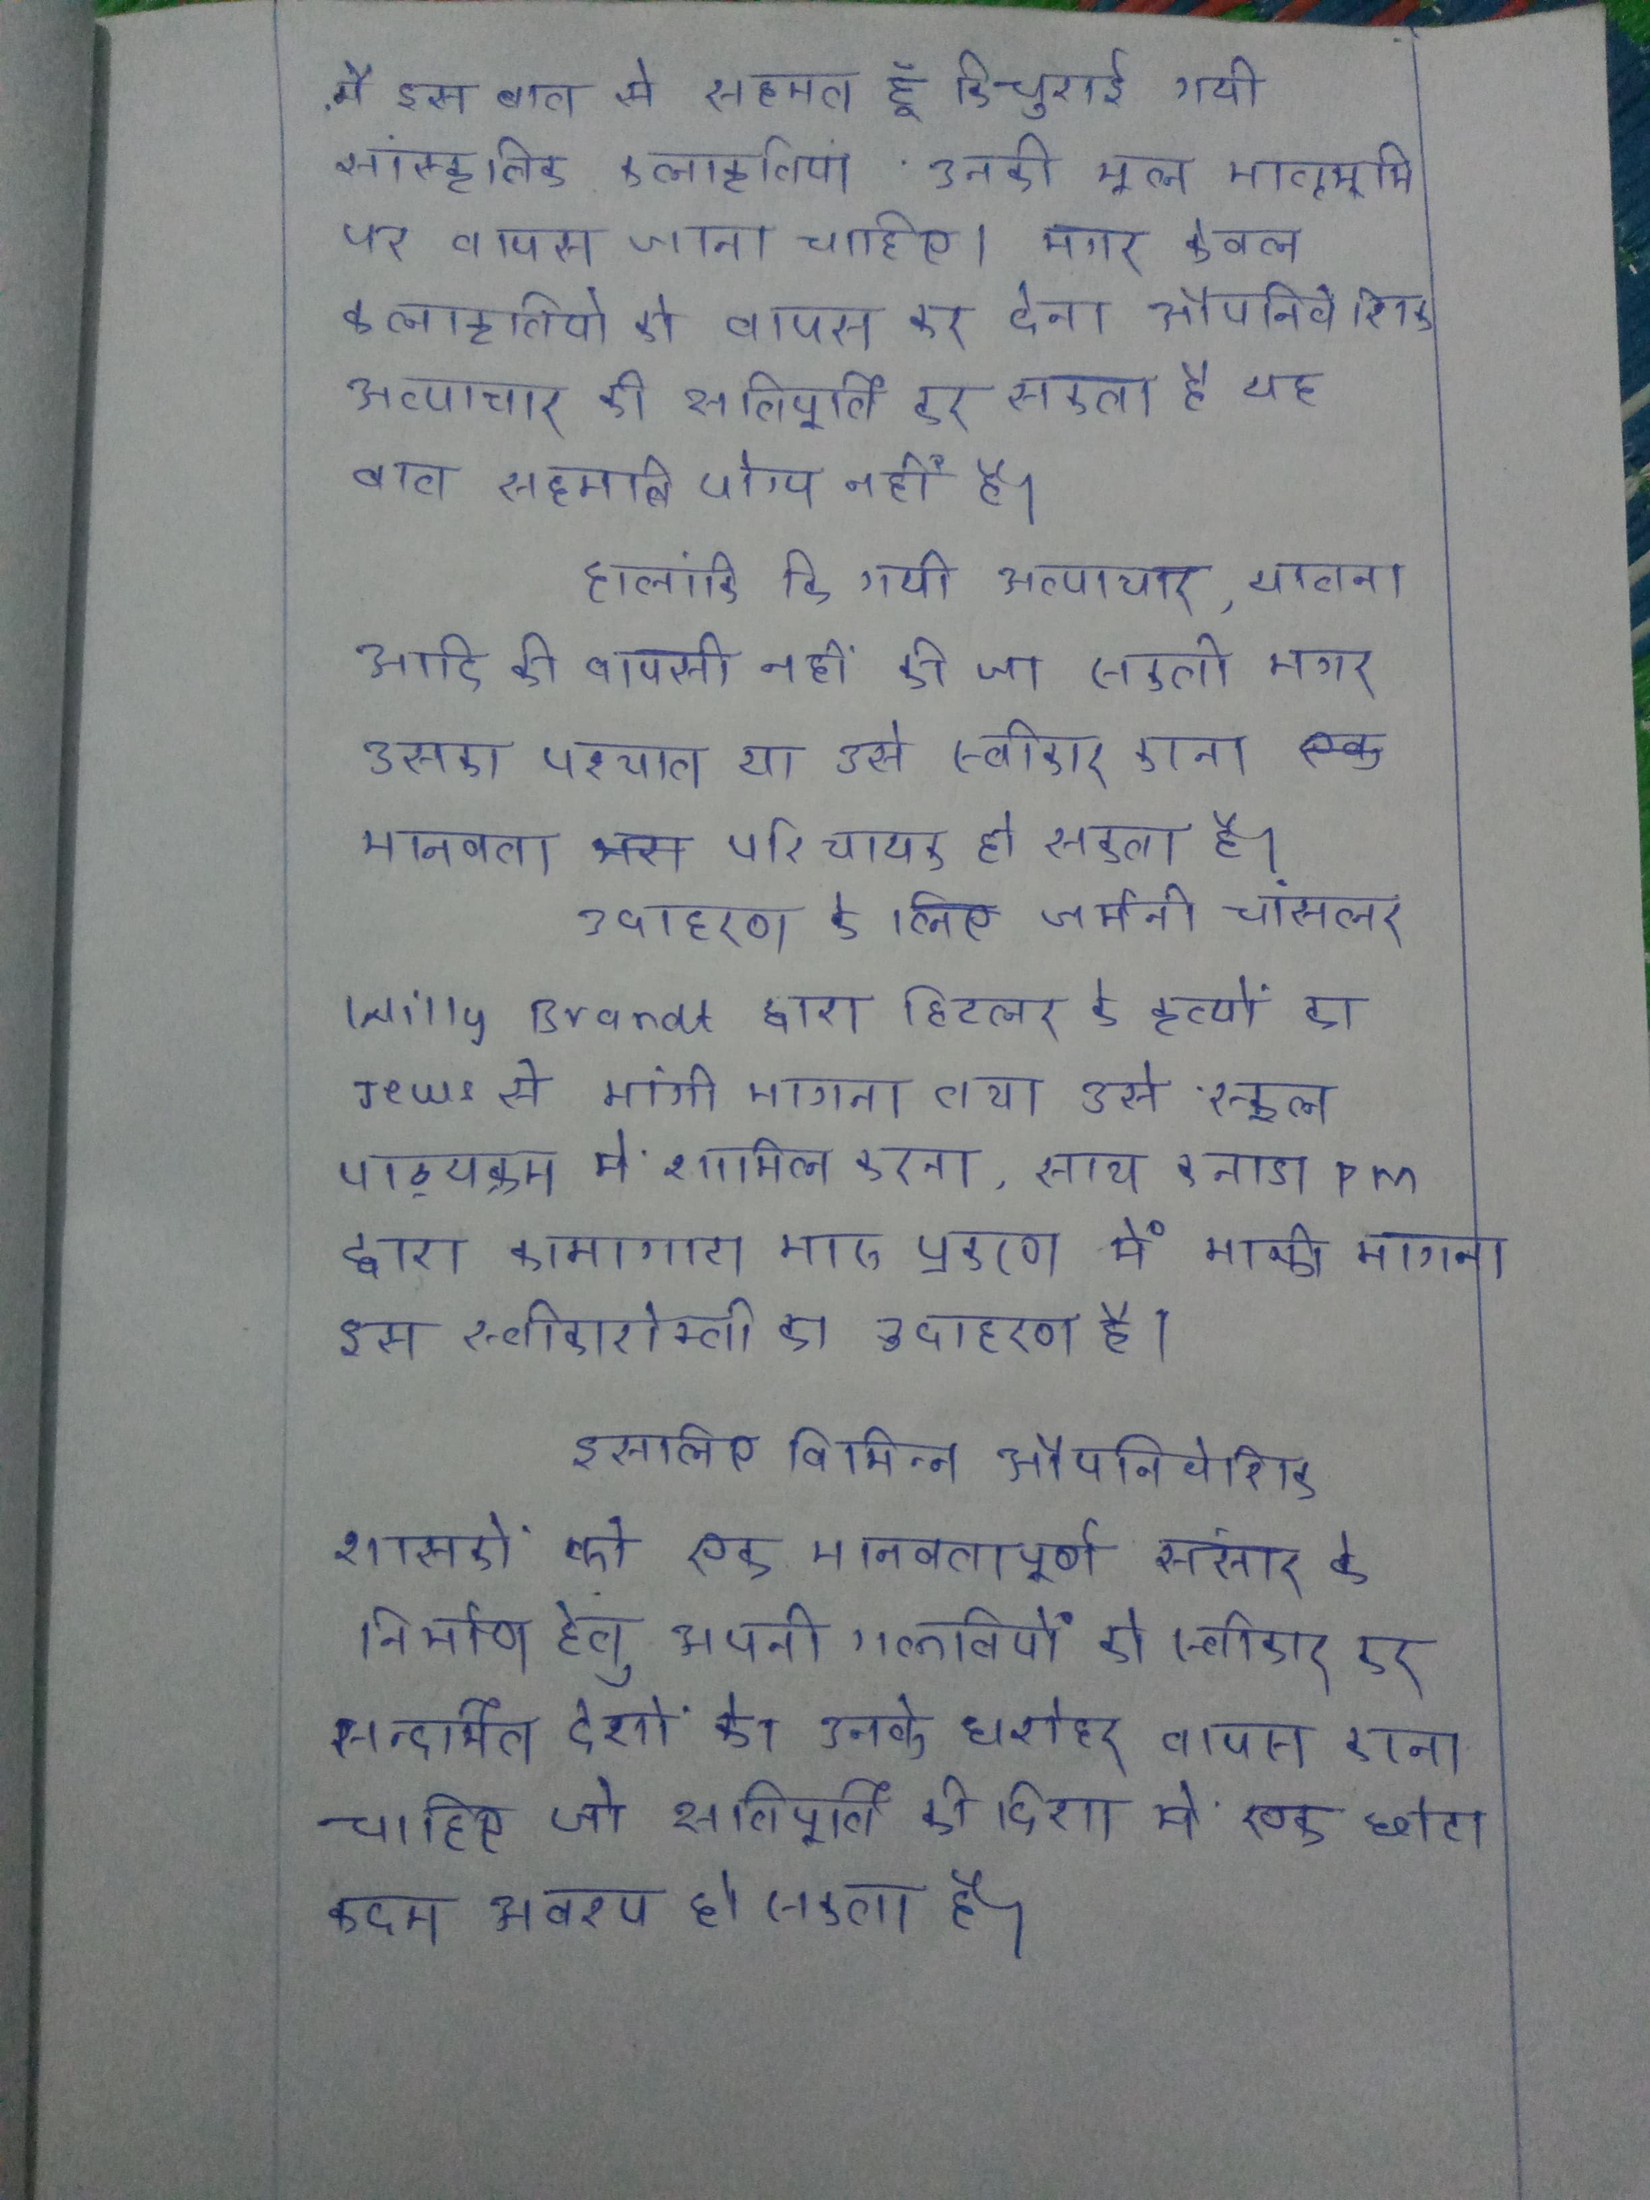 मै इस बात से सहमत हूँ कि चुराई गयी
सांस्कृतिक कलाकृतियां उनकी मूल मातृभूमि
पर वापस जाना चाहिए। मगर केवल
कलाकृतियो को वापस कर देना औपनिवेशिक
अत्याचार की क्षतिपूर्ति कर सकता है यह
बात सहमति योग्य नहीं है।
हालांकि कि गयी अत्याचार, यातना
आदि की वापसी नहीं की जा सकती मगर
उसका पश्चात या उसे स्वीकार करना एक
मानवता परिचायक हो सकता है।
उदाहरण के लिए जर्मनी चांसलर
Willy Brandt द्वारा हिटलर के कृत्यों का
Jews से मांगी मागना तथा उसे स्कूल
पाठ्यक्रम मे शामिल करना, साथ कनाडा PM
द्वारा कामागाटा मारू प्रकरण में माफी मागना
इस स्वीकारोक्ती का उदाहरण है।
इसलिए विभिन्न औपनिवेशिक
शासकों को एक मानवतापूर्ण संसार के
निर्माण हेतु अपनी गलतियों को स्वीकार कर
सन्दर्भित देशों को उनके धरोहर वापस करना
चाहिए जो क्षतिपूर्ति की दिशा मे एक छोटा
कदम अवश्य हो सकता है।